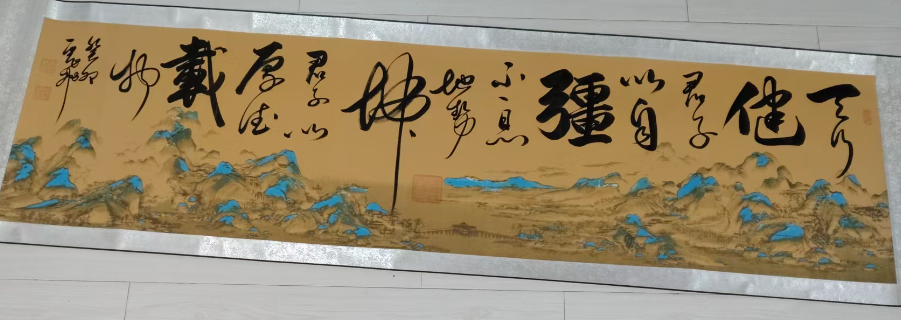 天行
健
君子
以自
彊
不息
地势
坤
君子以
厚德
載
物
癸卯